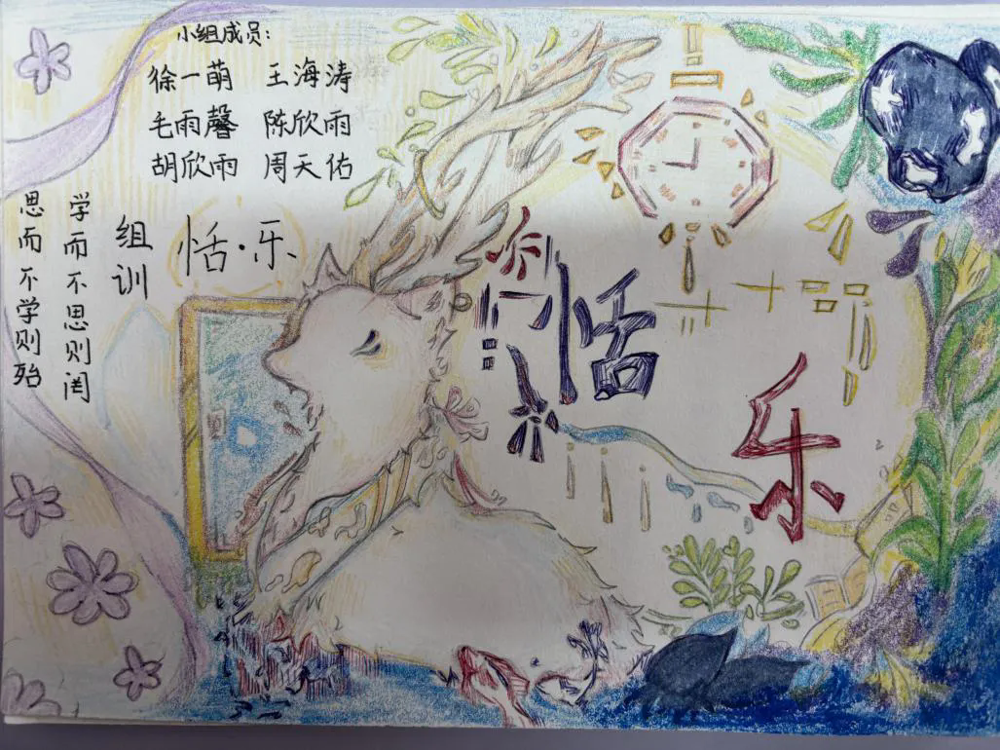 小组成员：
徐一萌 王海涛
毛雨馨 陈欣雨
胡欣雨 周天佑
组训
恬·乐
学而不思则罔
思而不学则殆
恬
乐